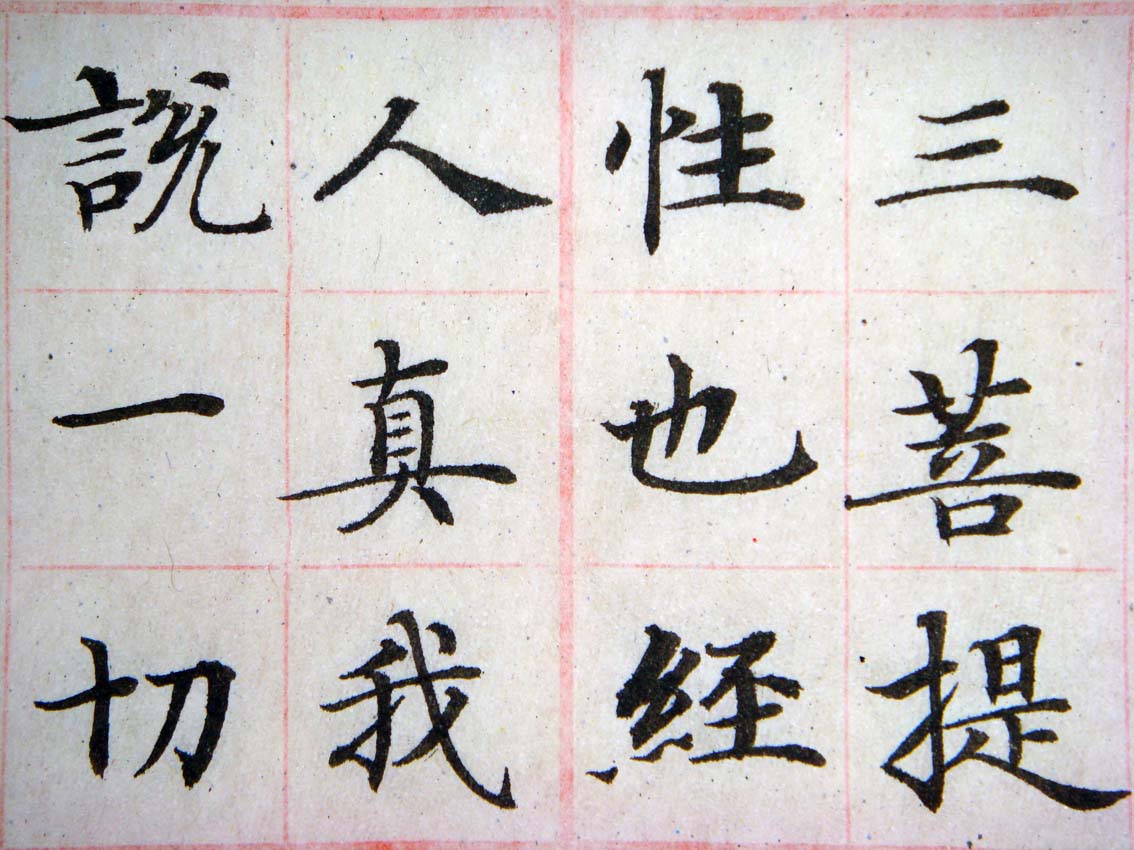 三菩提
性也經
人真我
說一切